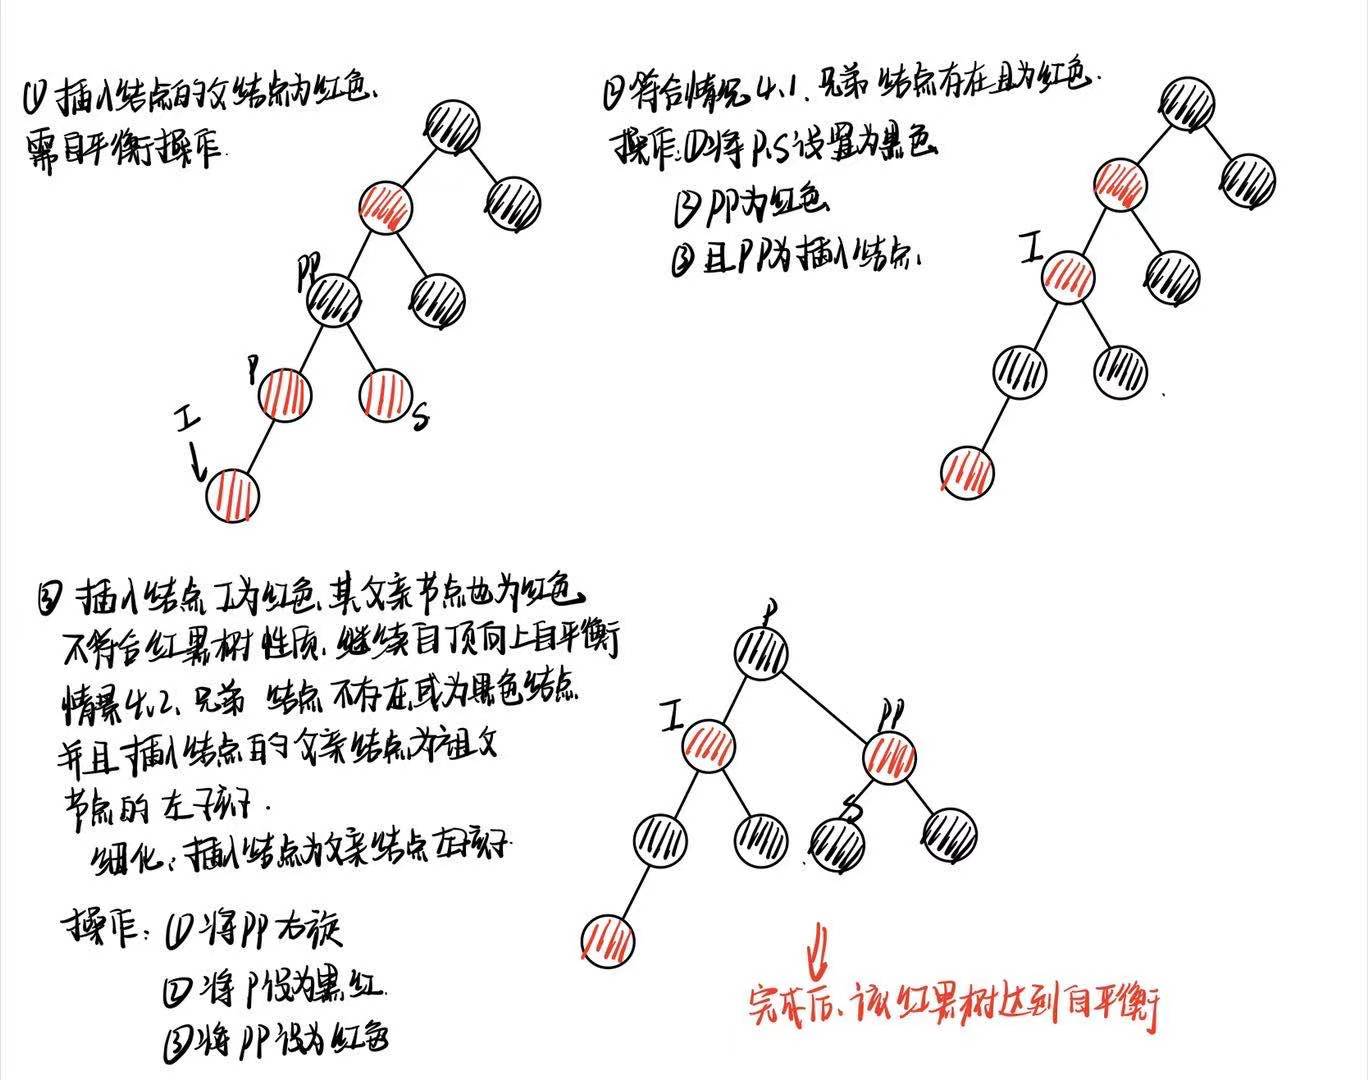 ① 插入结点的父结点为红色、
需自平衡操作.
PP
P
S
I
② 符合情况4.1、兄弟结点存在且为红色.
操作:①将P、S设置为黑色
②PP为红色
③且PP为插入结点、
I
③ 插入结点I为红色、其父亲节点也为红色、
不符合红黑树性质、继续自顶向上自平衡
情景4.2、兄弟结点不存在或为黑色结点
并且插入结点的父亲结点为祖父
节点的左子孩子.
细化:插入结点为父亲结点左孩子.
操作:①将PP右旋
②将P设为黑红.
③将PP设为红色
P
I
PP
S
完成后、该红黑树达到自平衡